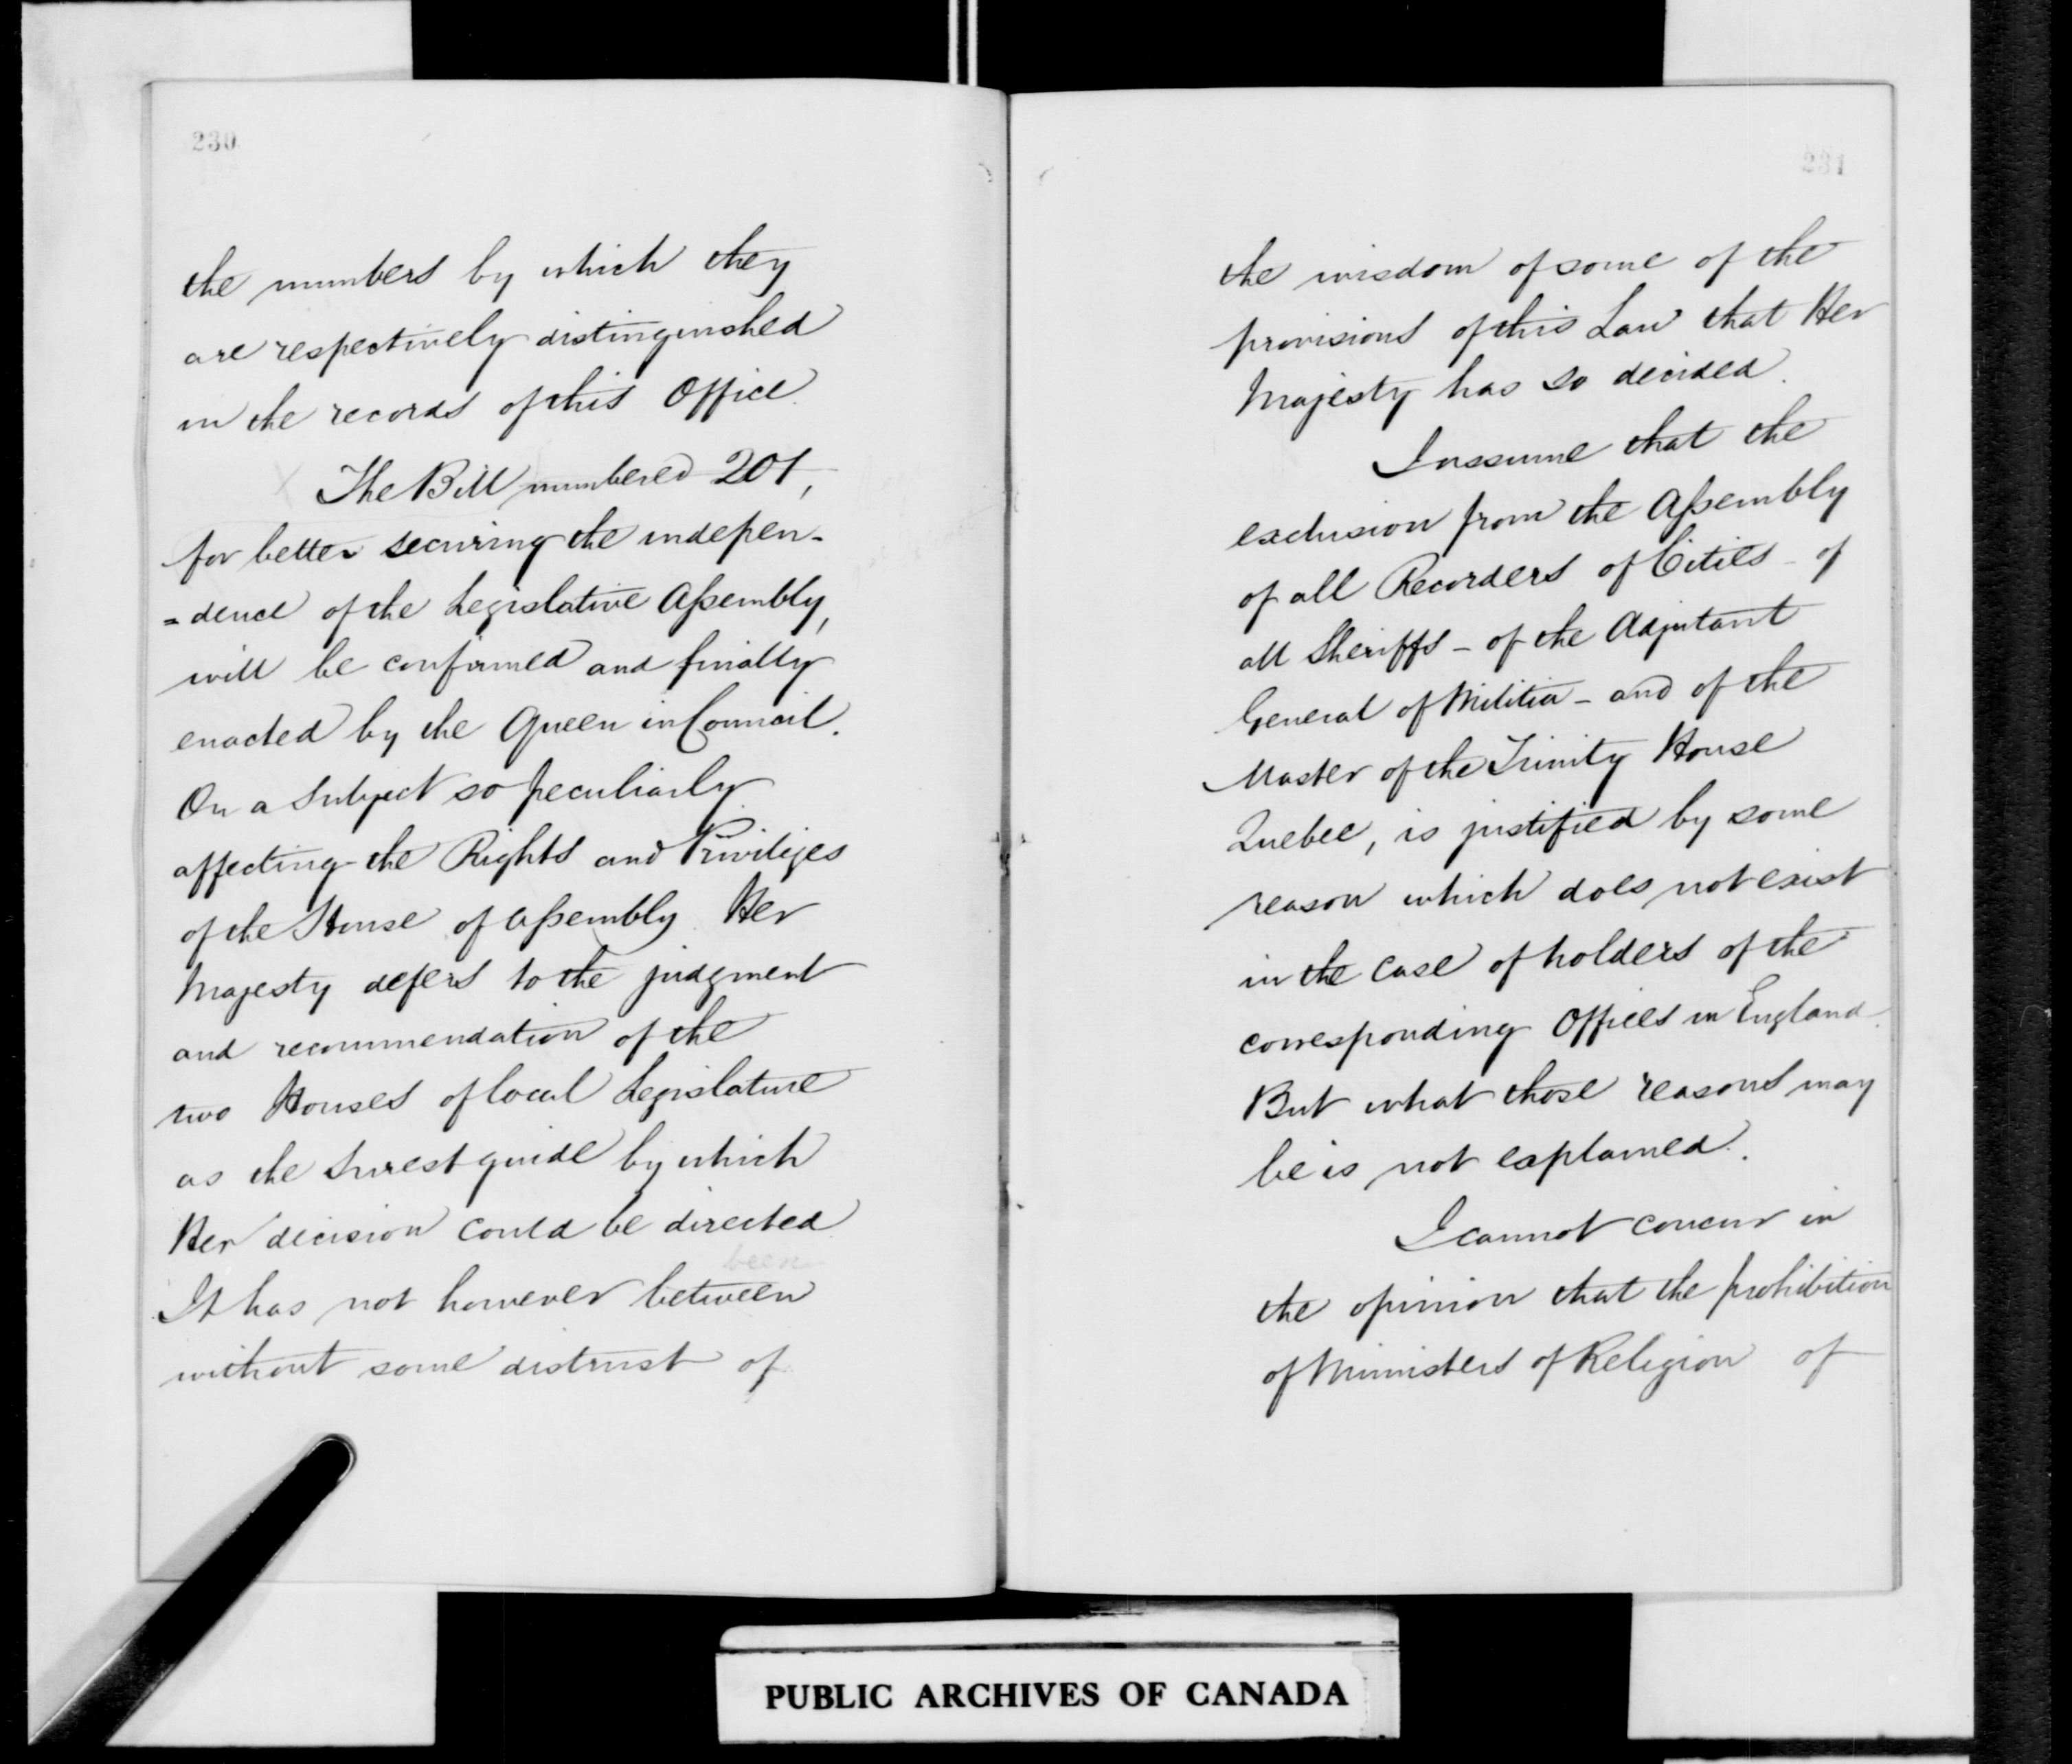 230
the numbers by which they
are respectively distinguished
in the records of this Office.
X The Bill numbered 201,
for better securing the indepen-
=dence of the Legislative Assembly,
will be confirmed and finally
enacted by the Queen in Council.
On a Subject so peculiarly
affecting the Rights and Privileges
of the House of Assembly Her
Majesty defers to the judgment
and recommendation of the
two Houses of local Legislature
as the surest guide by which
Her decision could be directed
been
It has not however between
without some distrust of
231
the wisdom of some of the
provisions of this Law that Her
Majesty has so decided.
I assume that the
exclusion from the Assembly
of all Recorders of Cities - of
all Sheriffs - of the Adjutant
General of Militia - and of the
Master of the Trinity House
Quebec, is justified by some
reason which does not exist
in the case of holders of the
corresponding Offices in England.
But what those reasons may
be is not explained.
I cannot concur in
the opinion that the prohibition
of Ministers of Religion of
PUBLIC ARCHIVES OF CANADA